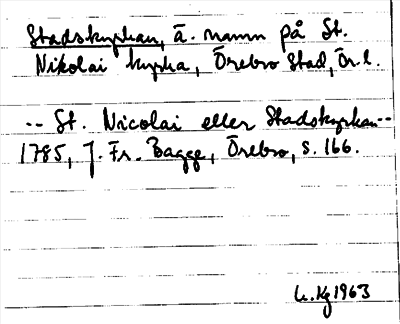 Stadskyrkan, ä. namn på St.
Nikolai kyrka, Örebro stad, Ör.l.
-- St. Nicolai eller Stadskyrkan --
1785, J. Fr. Bagge, Örebro, s. 166.
1963